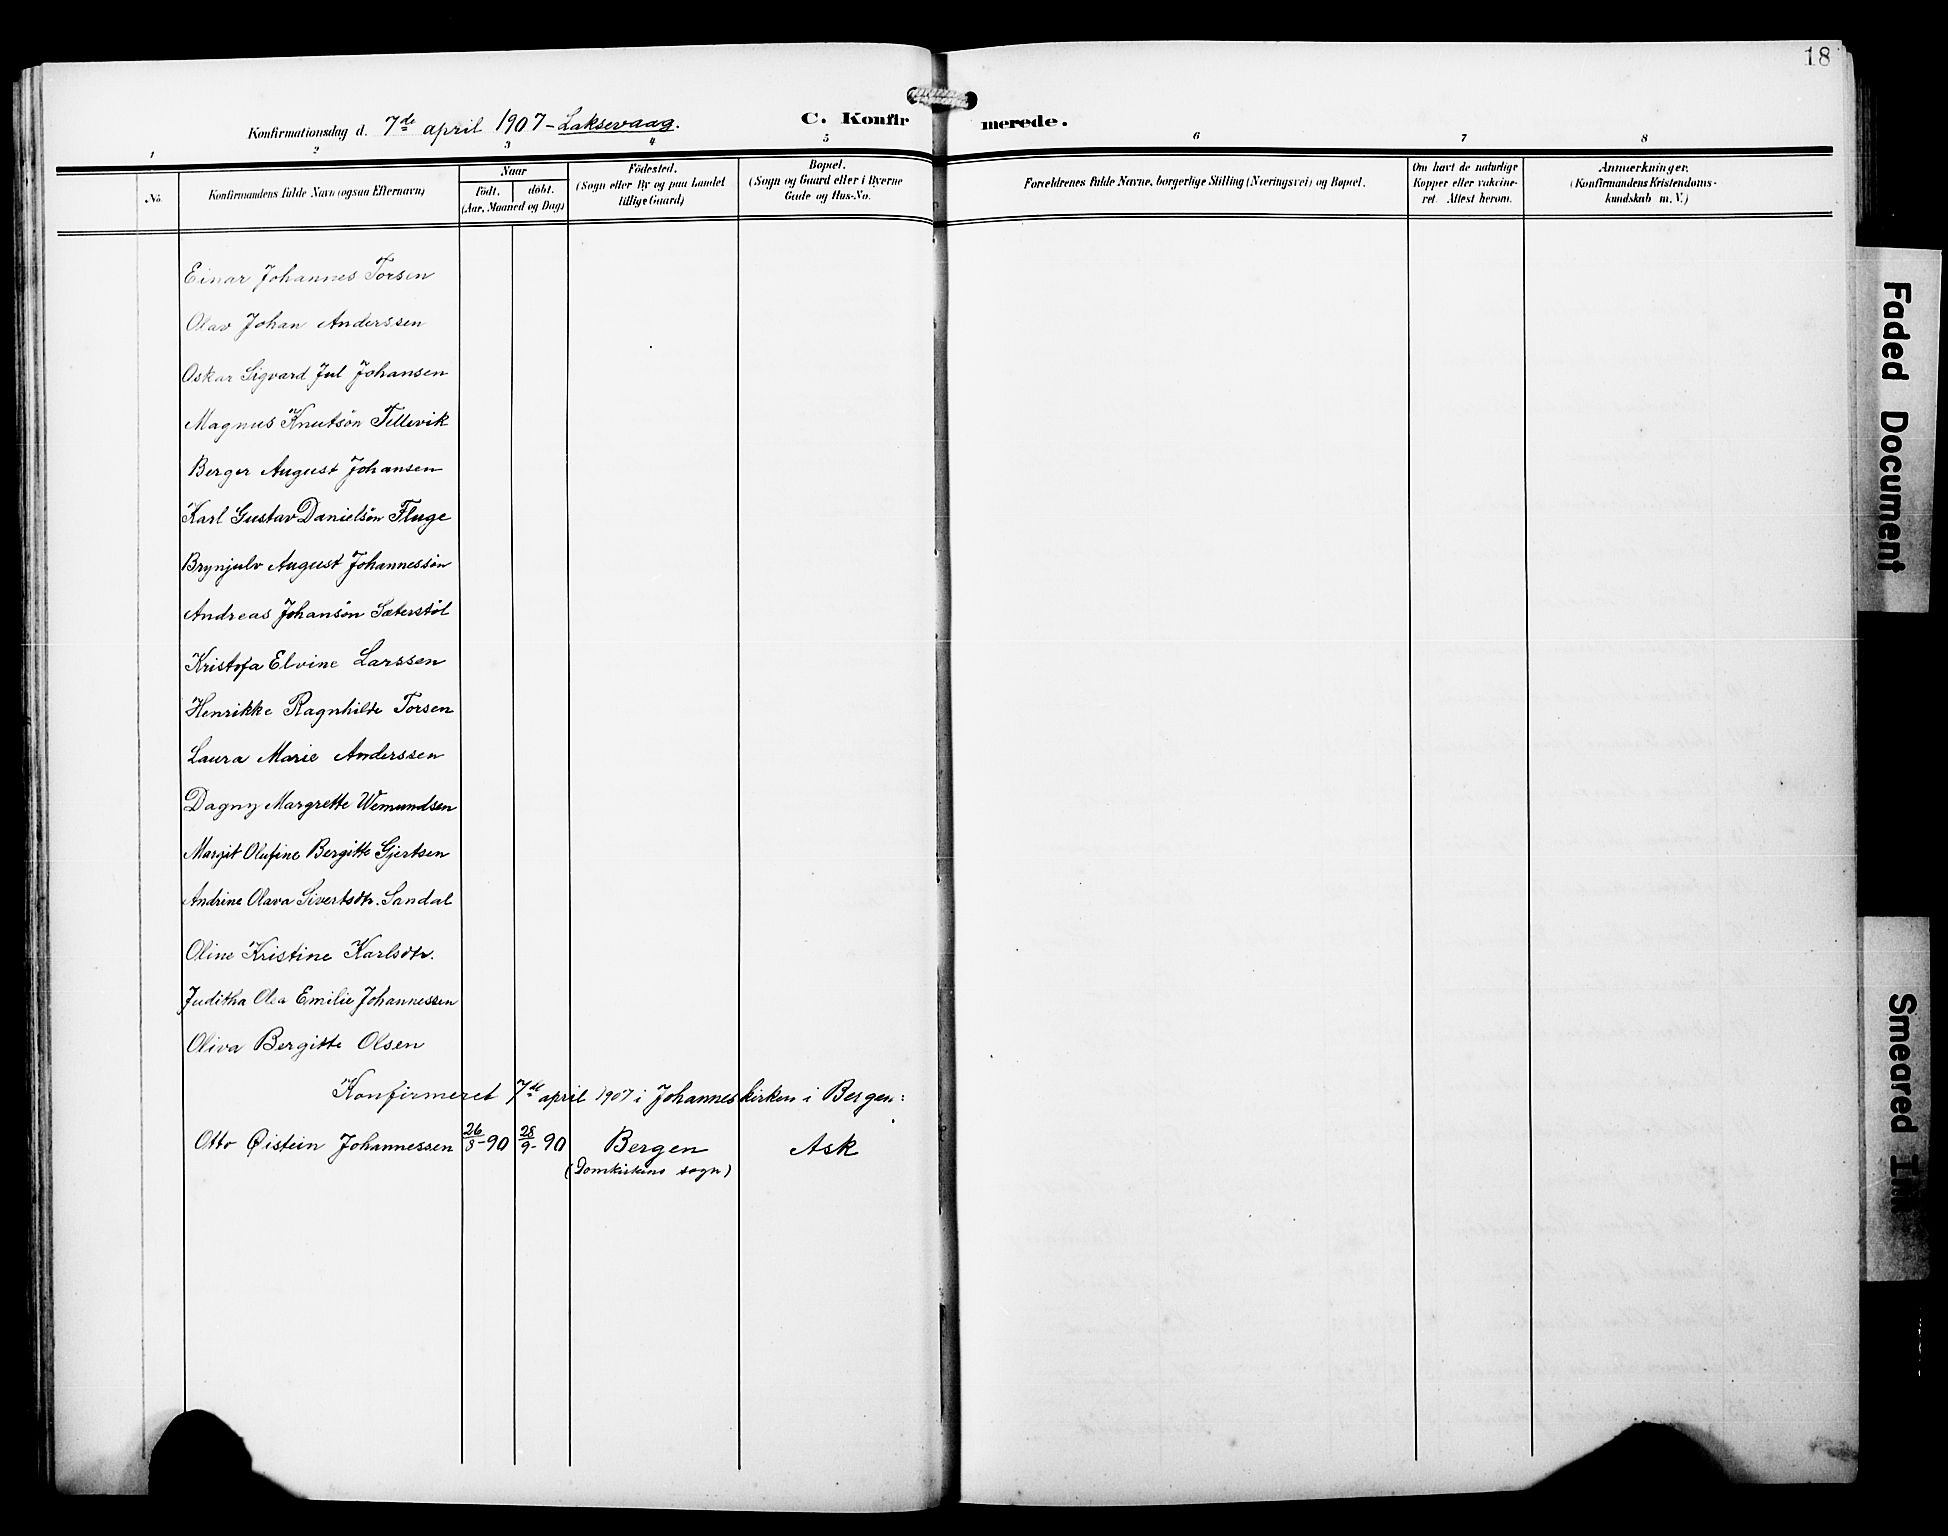 18
Konfirmationsdag d. 7de april 1907 - Laksevaag. C. Konfirmerede.
1 2 3 4 5 6 7 8
No. Konfirmandens fulde Navn (ogsaa Efternavn)
Naar
födt. döbt.
(Aar, Maaned og Dag)
Födested.
(Sogn eller By og paa Landet
tillige Gaard)
Bopæl.
(Sogn og Gaard eller i Byerne
Gade og Hus-No.
Forældrenes fulde Navne, borgerlige Stilling (Næringsvei) og Bopæl.
Om havt de naturlige
Kopper eller vakcine-
ret. Attest herom.
Anmærkninger.
(Konfirmandens Kristendoms-
kundskab m. V.)
Einar Johannes Torsen
Olav Johan Anderssen
Oskar Sigvard Jul Johansen
Magnus Knutsøn Tellevik
Berger August Johansen
Karl Gustav Danielsøn Fluge
Brynjulv August Johannessøn
Andreas Johansøn Sæterstøl
Kristofa Elvine Larssen
Henrikke Ragnhilde Torsen
Laura Marie Anderssen
Dagny Margrette Wemundsen
Margit Olufine Bergitte Gjertsen
Andrine Olava Sivertsdtr. Sandal
Oline Kristine Karlsdtr.
Juditha Olea Emilie Johannessen
Oliva Bergitte Olsen
Konfirmeret 7de april 1907 i Johanneskirken i Bergen:
Otto Øistein Johannessen 26/8-90 28/9-90 Bergen Ask
(Domkirkens sogn)
Faded Document
Smeared Ink